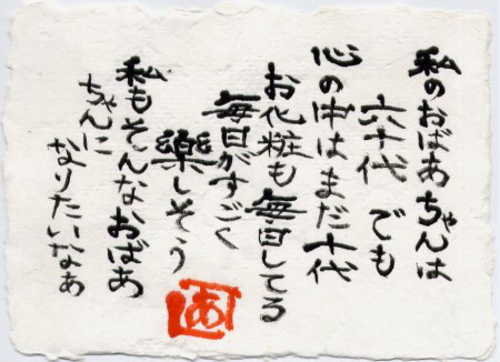 私のおばあちゃんは
六十代でも
心の中はまだ十代
お化粧も毎日してる
毎日がすごく
楽しそう
私もそんなおばあ
ちゃんに
なりたいなぁ
あ